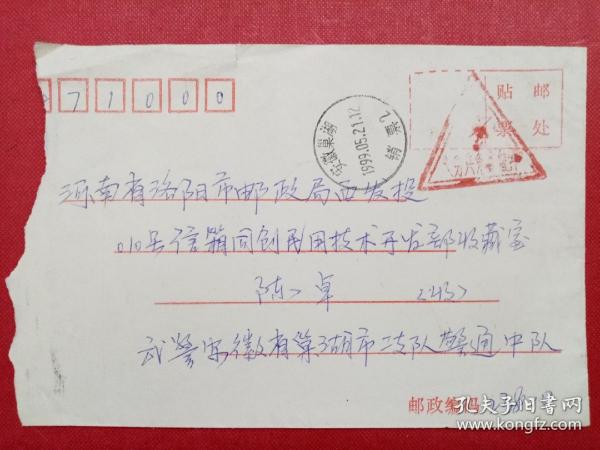 71000
贴 邮
票 处
安徽巢湖
1999.05.21.12
销票
河南省洛阳市邮政局西发投
010号信箱同创民用技术开发部收藏室
陈 卓 (收)
武警安徽省巢湖市支队警通中队
邮政编码
孔夫子旧书网
www.kongfz.com